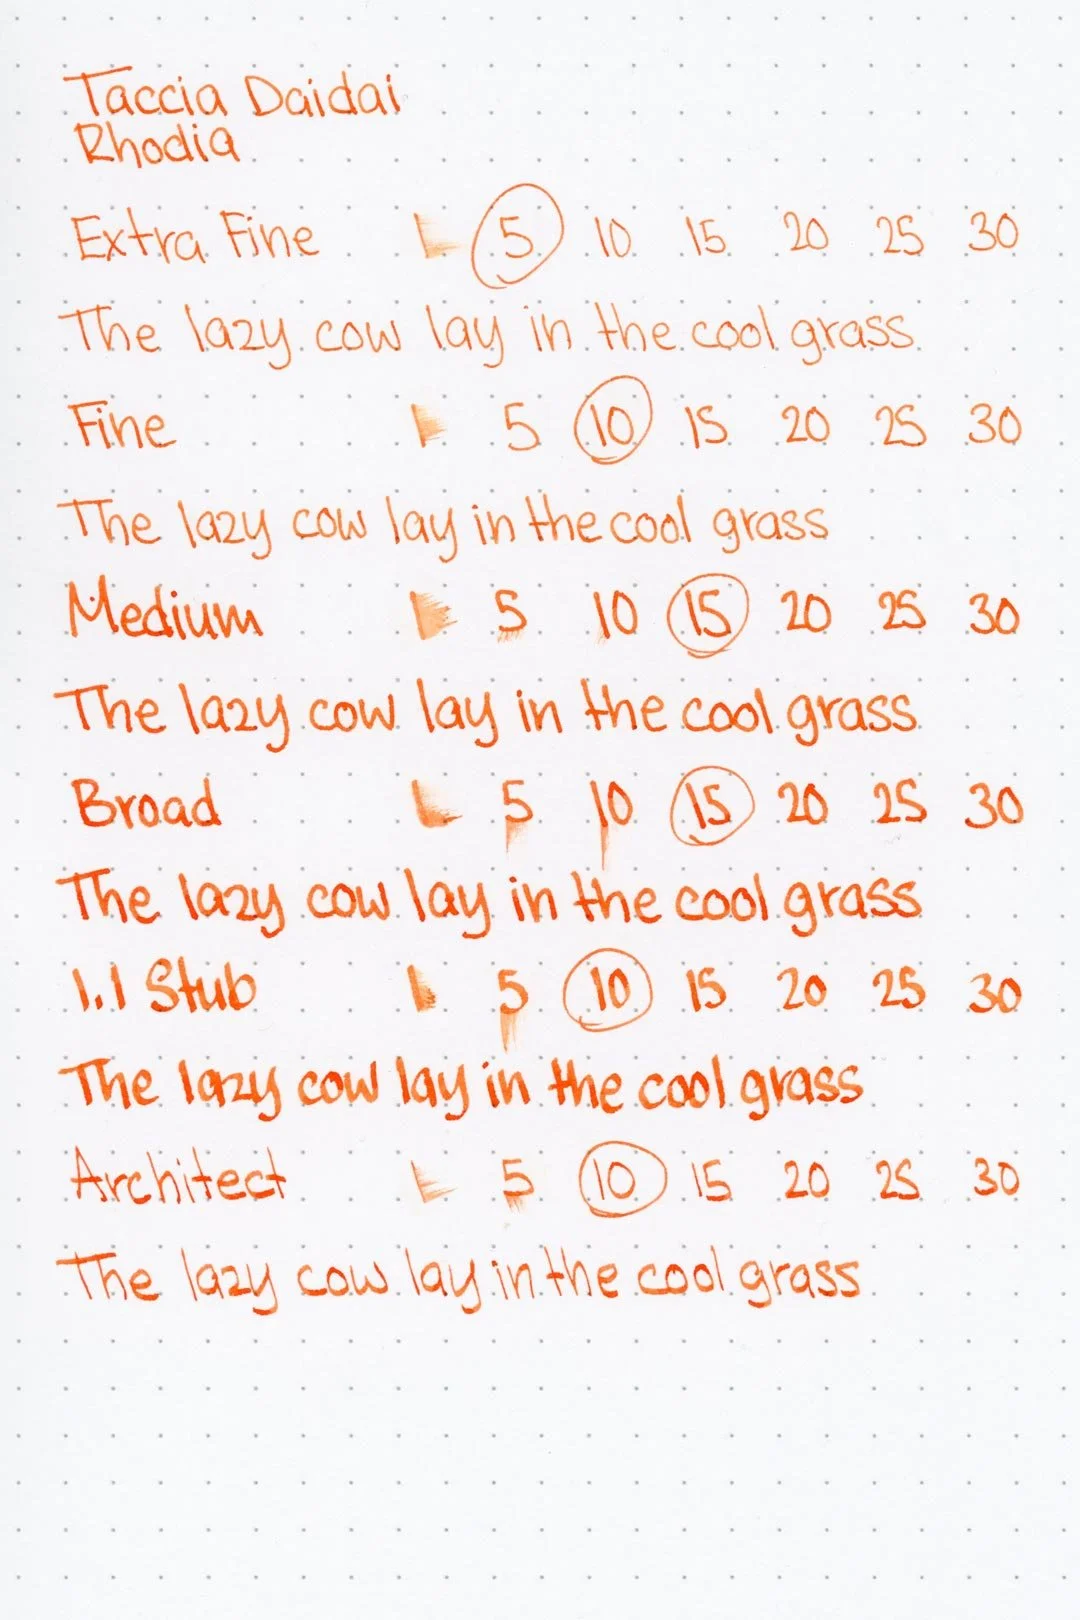 Taccia Daidai
Rhodia
Extra Fine 5 10 15 20 25 30
The lazy cow lay in the cool grass
Fine 5 10 15 20 25 30
The lazy cow lay in the cool grass
Medium 5 10 15 20 25 30
The lazy cow lay in the cool grass
Broad 5 10 15 20 25 30
The lazy cow lay in the cool grass
1.1 Stub 5 10 15 20 25 30
The lazy cow lay in the cool grass
Architect 5 10 15 20 25 30
The lazy cow lay in the cool grass